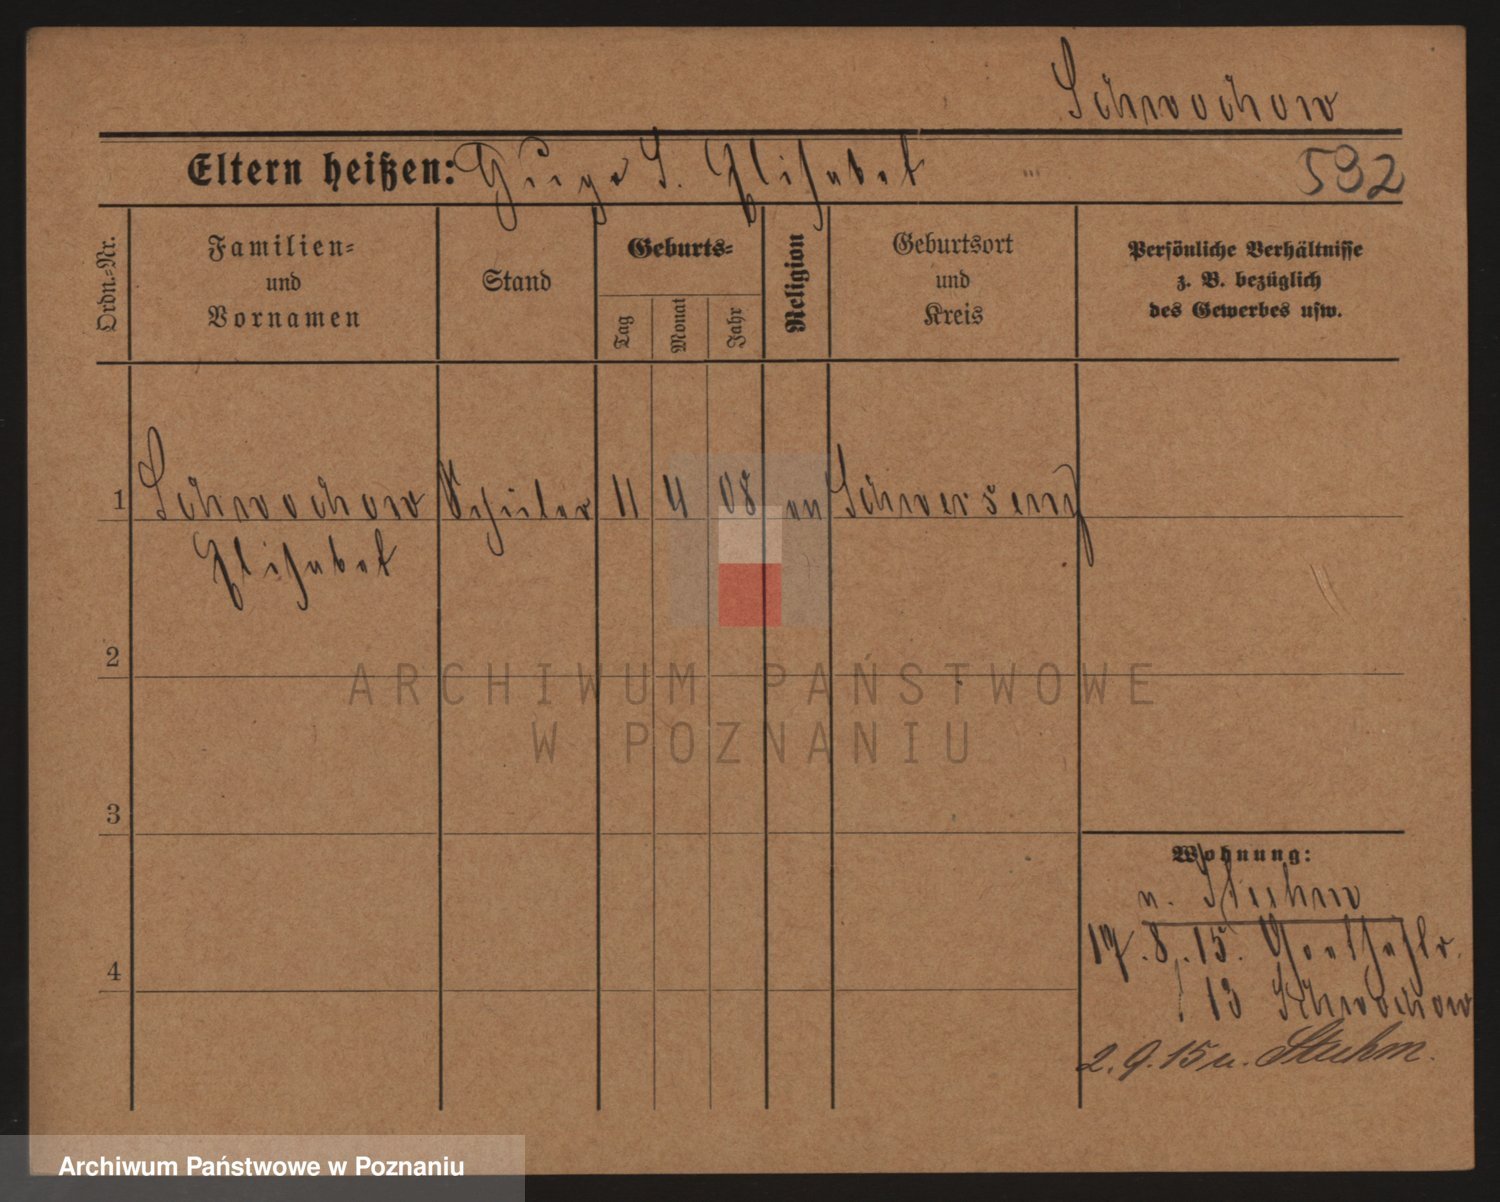 Schwochow
Eltern heißen: Hugo S. Elisabet
532
Ordn.=Nr.
Familien=
und
Vornamen
Stand
Geburts=
Tag
Monat
Jahr
Religion
Geburtsort
und
Kreis
Persönliche Verhältnisse
z. B. bezüglich
des Gewerbes usw.
1 Schwochow Schüler 11 4 08 ev Schwersenz
Elisabet
2
3
4
Wohnung:
n. Stuhm
17.8.15. Goethestr.
13 Schwochow
2.9.15 n. Stuhm.
ARCHIWUM PAŃSTWOWE
W POZNANIU
Archiwum Państwowe w Poznaniu